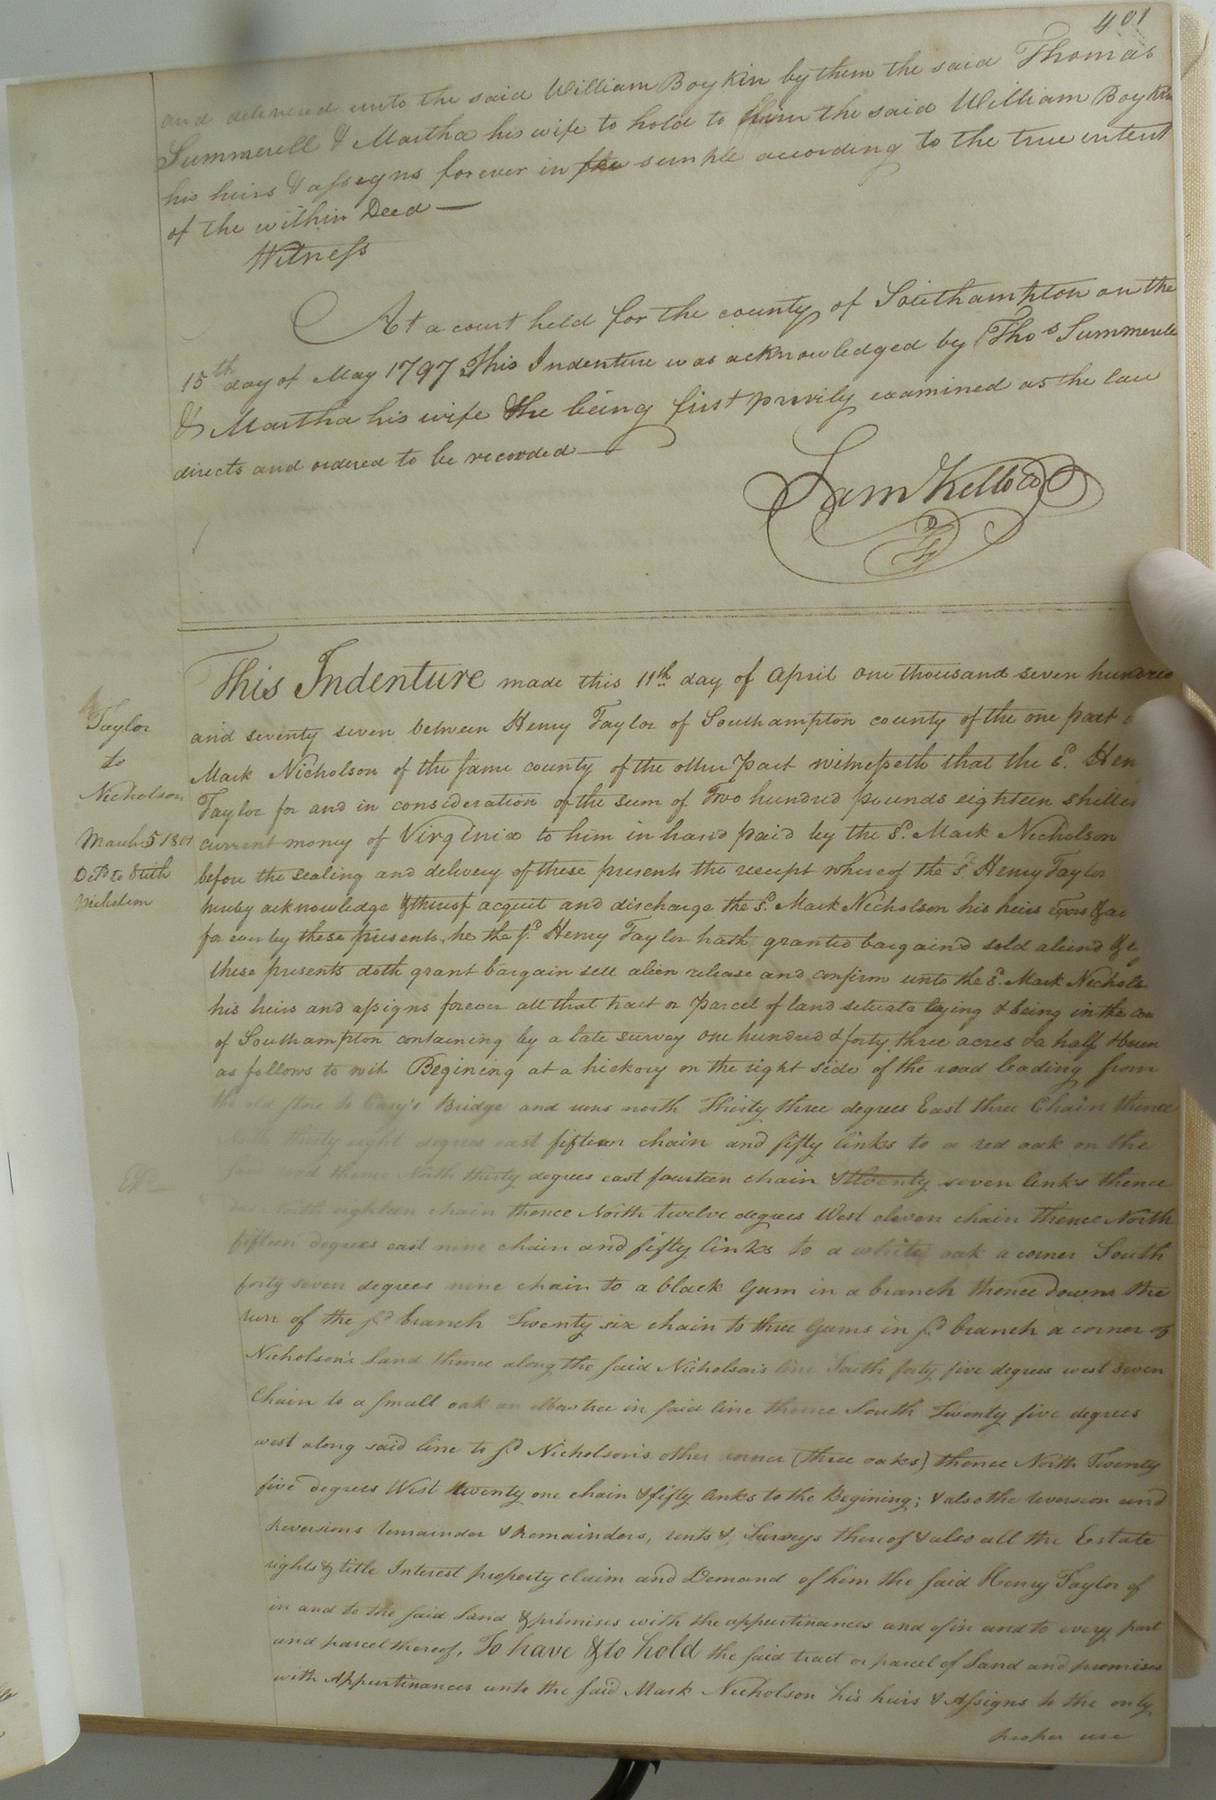 401
and delivered unto the said William Boykin by them the said Thomas
Summerell & Martha his wife to hold to him the said William Boykin
his heirs & assigns forever in fee simple according to the true intent
of the within Deed —
Witness
At a court held for the county of Southampton on the
15th day of May 1797 This Indenture was acknowledged by Thos Summerell
& Martha his wife She being first privily examined as the law
directs and ordered to be recorded —
Sam Kello
Taylor
to
Nicholson
March 5 1801
Deld to
Nicholson
This Indenture made this 11th day of April one thousand seven hundred
and seventy seven between Henry Taylor of Southampton county of the one part
Mark Nicholson of the same county of the other Part witnesseth that the sd. Hen
Taylor for and in consideration of the sum of Two hundred pounds eighteen shillin
current money of Virginia to him in hand paid by the sd. Mark Nicholson
before the sealing and delivery of these presents the receipt whereof the sd Henry Taylor
acknowledge & thereof acquit and discharge the sd. Mark Nicholson his heirs exors &
for ever by these presents, he the sd. Henry Taylor hath granted bargain'd sold aliend &
these presents doth grant bargain sell alien release and confirm unto the sd. Mark Nichols
his heirs and assigns forever all that tract or parcel of land situate laying & being in the cou
of Southampton containing by a late survey one hundred & forty three acres & a half
as follows to wit Begining at a hickory on the right side of the road leading from
the old store to Cary's Bridge and runs north Thirty three degrees East three Chain thence
North thirty eight degrees east fifteen chain and fifty links to a red oak on the
said road thence North thirty degrees east fourteen chain & twenty seven links thence
North eighteen chain thence North twelve degrees West eleven chain thence North
fifteen degrees east nine chain and fifty links to a white oak a corner South
forty seven degrees nine chain to a black Gum in a branch thence down the
run of the sd branch Twenty six chain to three Gums in sd branch a corner of
Nicholson's Land thence along the said Nicholson's line South forty five degrees west Seven
Chain to a small oak an elbow tree in said line thence South Twenty five degrees
west along said line to sd Nicholson's other corner (three oaks) thence North Twenty
five degrees West twenty one chain & fifty links to the Begining; & also the reversion and
Reversions remainder & Remainders, rents & Surveys thereof & also all the Estate
rights & title Interest property claim and Demand of him the said Henry Taylor of
in and to the said Land & premises with the appurtinances and of in and to every part
and parcel thereof, To have & to hold the said tract or parcel of Land and premises
with Appurtinances unto the said Mark Nicholson his heirs & Assigns to the only
proper use